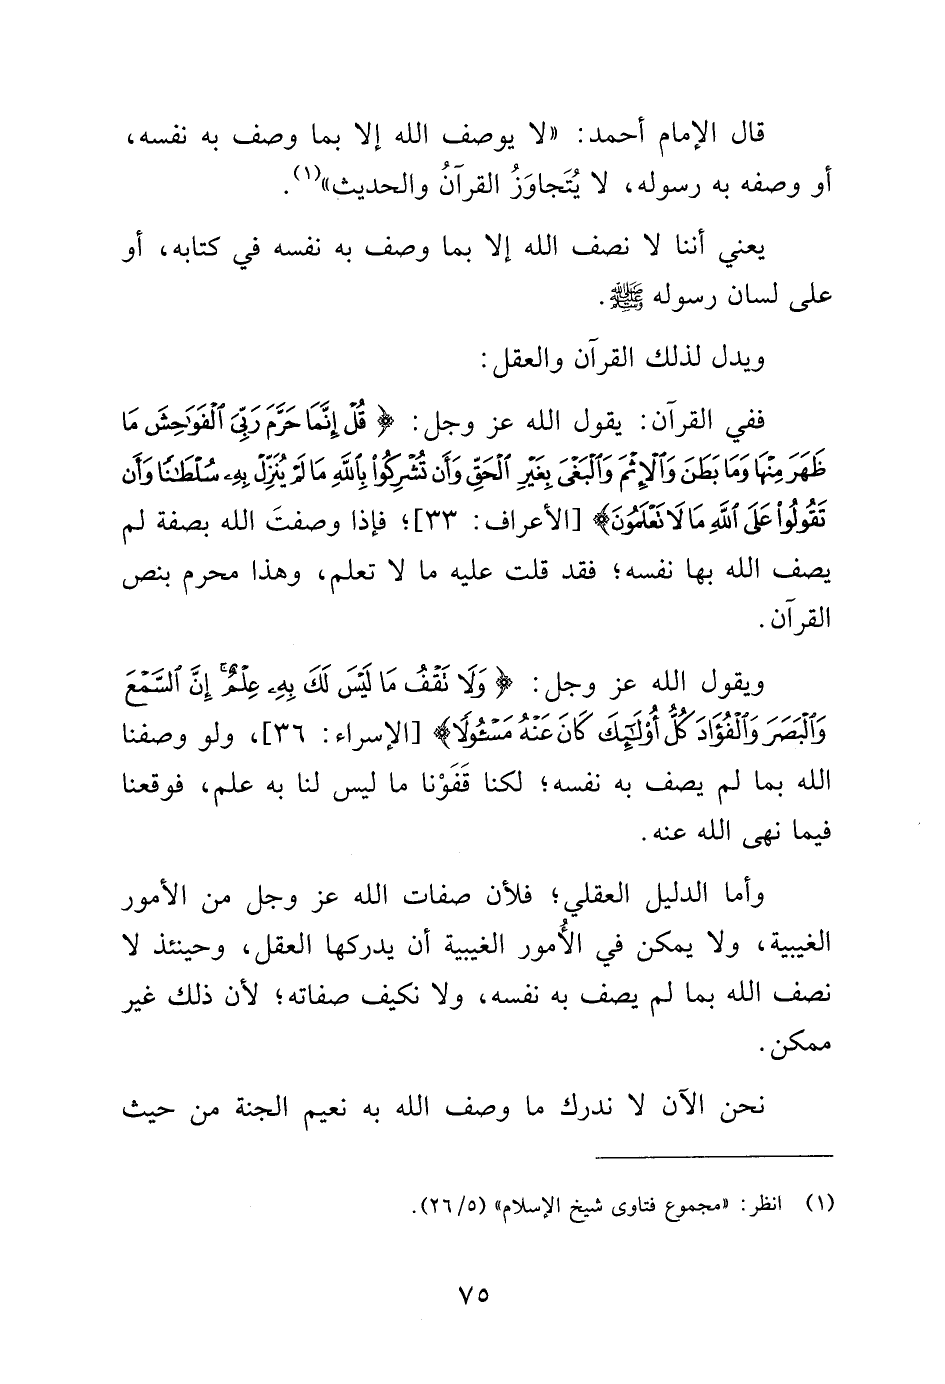 قال الإمام أحمد: «لا يوصف الله إلا بما وصف به نفسه،
أو وصفه به رسوله، لا يُتَجاوَزُ القرآنُ والحديث»(١).
يعني أننا لا نصف الله إلا بما وصف به نفسه في كتابه، أو
على لسان رسوله ﷺ.
ويدل لذلك القرآن والعقل:
ففي القرآن: يقول الله عز وجل: ﴿قُلْ إِنَّمَا حَرَّمَ رَبِّيَ ٱلْفَوَٰحِشَ مَا
ظَهَرَ مِنْهَا وَمَا بَطَنَ وَٱلْإِثْمَ وَٱلْبَغْىَ بِغَيْرِ ٱلْحَقِّ وَأَن تُشْرِكُوا۟ بِٱللَّهِ مَا لَمْ يُنَزِّلْ بِهِۦ سُلْطَـٰنًا وَأَن
تَقُولُوا۟ عَلَى ٱللَّهِ مَا لَا تَعْلَمُونَ﴾ [الأعراف: ٣٣]؛ فإذا وصفتَ الله بصفة لم
يصف الله بها نفسه؛ فقد قلت عليه ما لا تعلم، وهذا محرم بنص
القرآن.
ويقول الله عز وجل: ﴿وَلَا تَقْفُ مَا لَيْسَ لَكَ بِهِۦ عِلْمٌ ۚ إِنَّ ٱلسَّمْعَ
وَٱلْبَصَرَ وَٱلْفُؤَادَ كُلُّ أُو۟لَـٰٓئِكَ كَانَ عَنْهُ مَسْـُٔولًا﴾ [الإسراء: ٣٦]، ولو وصفنا
الله بما لم يصف به نفسه؛ لكنا قَفَوْنا ما ليس لنا به علم، فوقعنا
فيما نهى الله عنه.
وأما الدليل العقلي؛ فلأن صفات الله عز وجل من الأمور
الغيبية، ولا يمكن في الأُمور الغيبية أن يدركها العقل، وحينئذ لا
نصف الله بما لم يصف به نفسه، ولا نكيف صفاته؛ لأن ذلك غير
ممكن.
نحن الآن لا ندرك ما وصف الله به نعيم الجنة من حيث
(١) انظر: «مجموع فتاوى شيخ الإسلام» (٢٦/٥).
٧٥